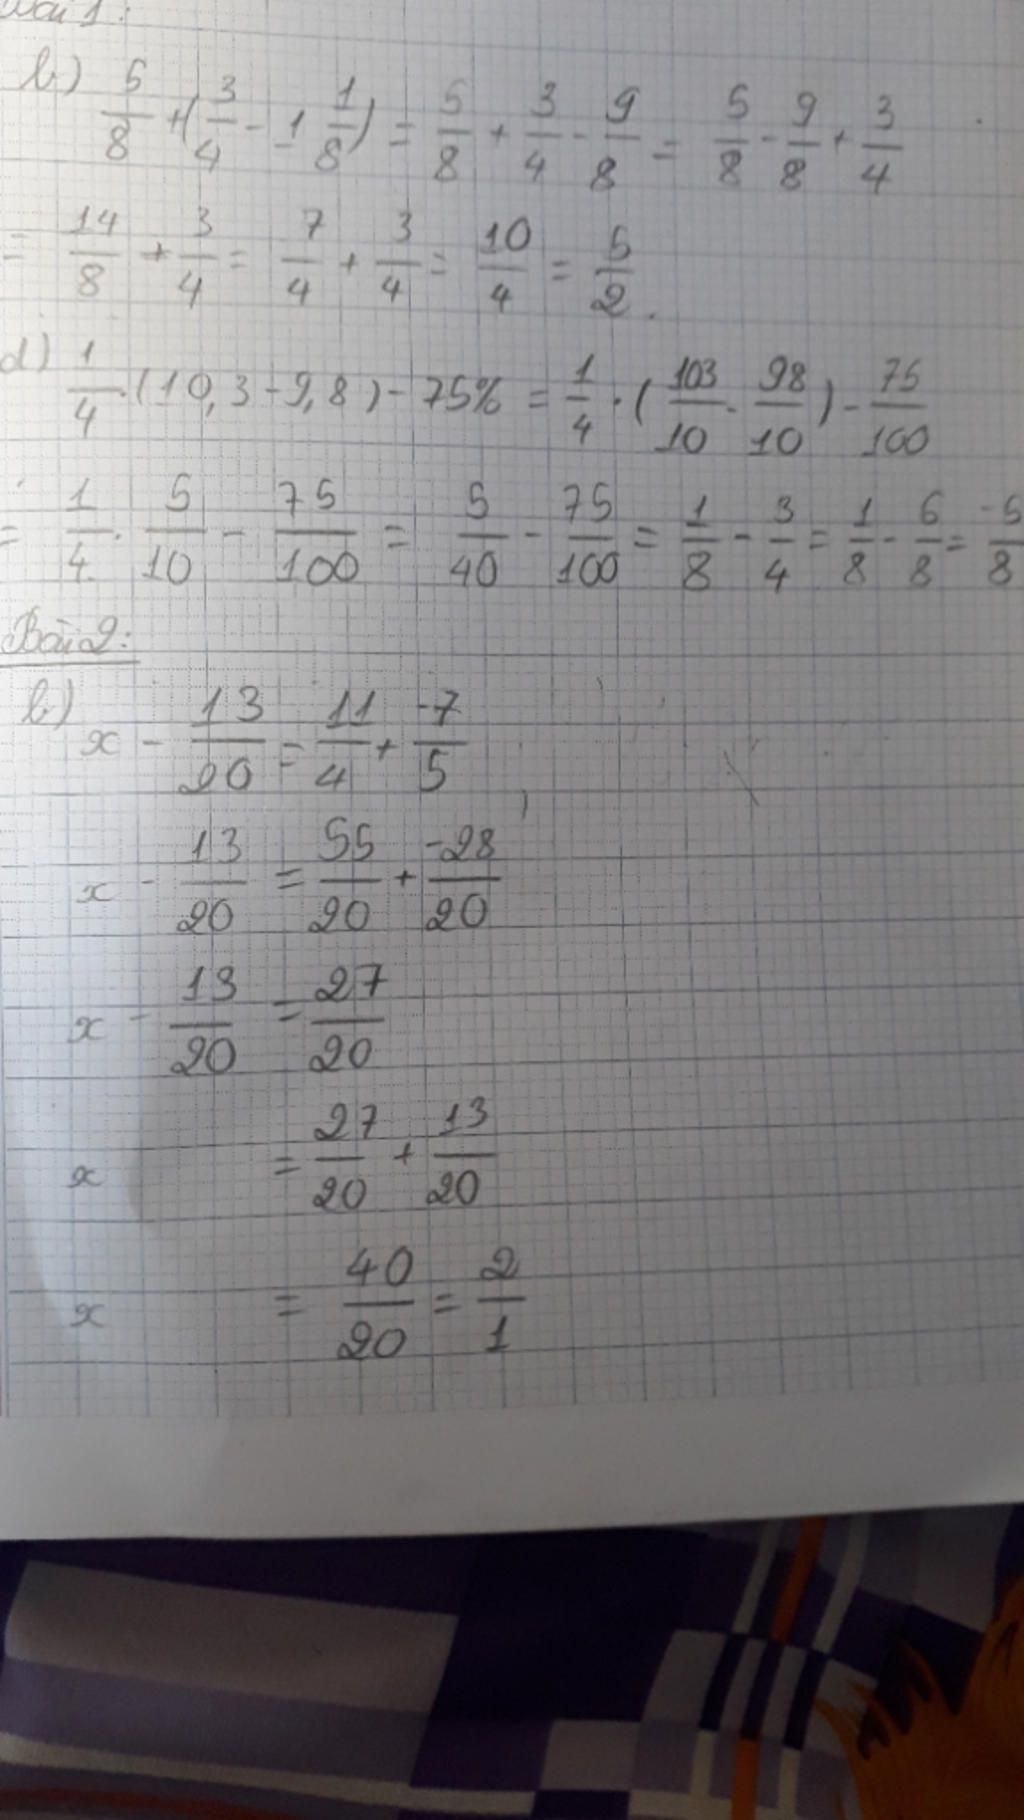 Bài 1:
b) 5/8 + (3/4 - 1 1/8) = 5/8 + 3/4 - 9/8 = 5/8 - 9/8 + 3/4
= 14/8 + 3/4 = 7/4 + 3/4 = 10/4 = 5/2.
d) 1/4 . (10,3 - 9,8) - 75% = 1/4 . (103/10 - 98/10) - 75/100
= 1/4 . 5/10 - 75/100 = 5/40 - 75/100 = 1/8 - 3/4 = 1/8 - 6/8 = -5/8
Bài 2:
b) x - 13/20 = 11/4 + -7/5
x - 13/20 = 55/20 + -28/20
x - 13/20 = 27/20
x = 27/20 + 13/20
x = 40/20 = 2/1